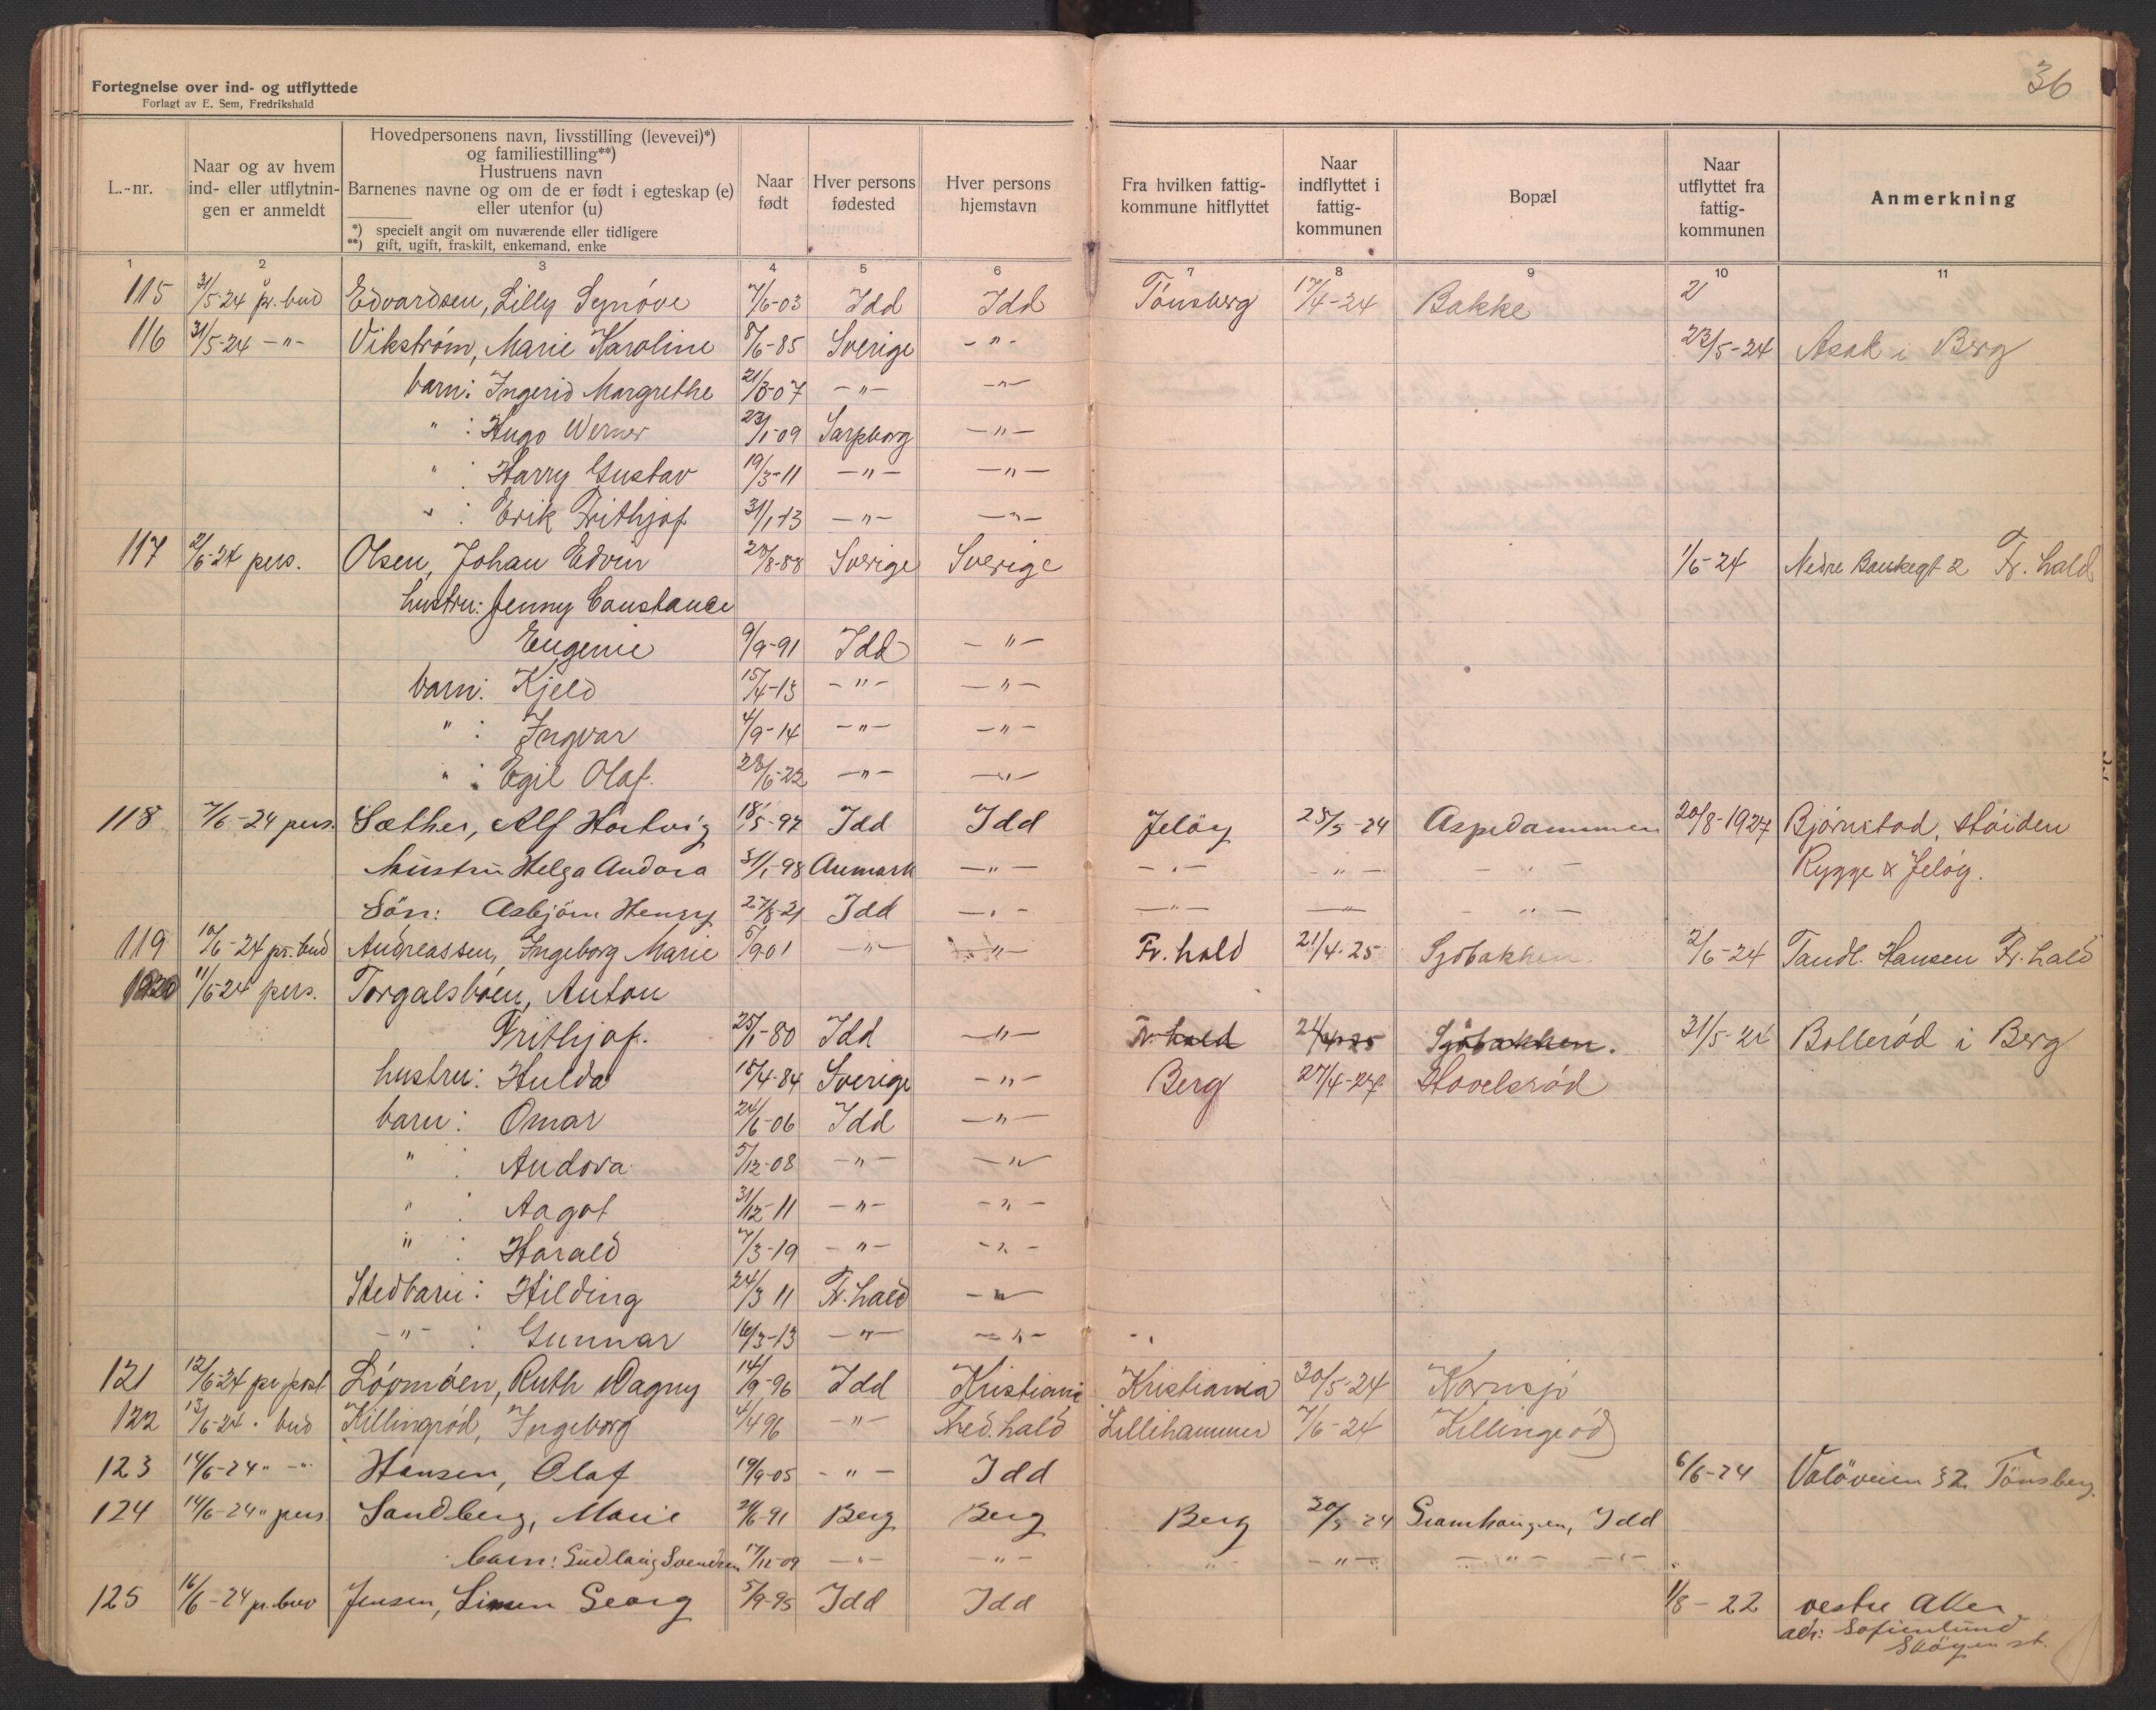 36
Fortegnelse over ind- og utflyttede
Forlagt av E. Sem, Fredrikshald
L.-nr.
Naar og av hvem
ind- eller utflytnin-
gen er anmeldt
Hovedpersonens navn, livsstilling (levevei)*)
og familiestilling**)
Hustruens navn
Barnenes navne og om de er født i egteskap (e)
eller utenfor (u)
*) specielt angit om nuværende eller tidligere
**) gift, ugift, fraskilt, enkemand, enke
Naar
født
Hver persons
fødested
Hver persons
hjemstavn
Fra hvilken fattig-
kommune hitflyttet
Naar
indflyttet i
fattig-
kommunen
Bopæl
Naar
utflyttet fra
fattig-
kommunen
Anmerkning
1 2 3 4 5 6 7 8 9 10 11
115 31/5-24 pr. bud Edvardsen, Lilly Synöve 7/6-03 Idd Idd Tönsberg 17/4-24 Bakke 2
116 31/5-24 -"- Vikström, Marie Karoline 8/6-85 Sverige -"- 23/5-24 Asak i Berg
barn: Ingerid Margrethe 21/3-07 -"- -"-
" : Hugo Werner 23/1-09 Sarpborg -"-
" : Harry Gustav 19/3-11 -"- -"-
" : Erik Frithjof 31/1-13 -"- -"-
117 2/6-24 pers. Olsen, Johan Edvin 28/8-88 Sverige Sverige 1/6-24 Nedre Bankegt 2 Fr. hald
hustru: Jenny Constance
Eugenie 9/9-91 Idd -"-
barn: Kjeld 15/4-13 -"- -"-
" : Ingvar 4/9-14 -"- -"-
" : Egil Olaf. 28/6-22 -"- -"-
118 7/6-24 pers. Sæther, Alf Hartvig 18/5-97 Idd Idd Jelöy 28/5-24 Aspedammen 20/8-1924 Bjørnstad, Høiden
hustru Helga Andora 31/1-98 Aremark -"- -"- -"- -"- Rygge & Jeløy.
Sön: Asbjörn Henry 27/8-21 Idd -"- -"- -"- -"-
119 10/6-24 pr. bud Andreassen, Ingeborg Marie 5/9 01 -"- -"- Fr. hald 21/4-25 Sjöbakken. 2/6-24 Tandl. Hansen Fr. hald
120 11/6-24 pers. Torgalsböen, Anton
Frithjof. 25/1-80 Idd -"- Fr. hald 21/4-25 Sjöbakken. 31/5-24 Bollerød i Berg
hustru: Hulda 15/4-84 Sverige -"- Berg 27/4-27 Hovelsrød
barn: Omar 24/6-06 Idd -"-
" : Andora 5/12-08 -"- -"-
" : Aagot 31/12-11 -"- -"-
" : Harald 7/3-19 -"- -"-
Stedbarn: Hilding 24/3 11 Fr. hald -"-
-"- : Gunnar 16/3-13 -"- -"-
121 12/6-24 pr post Lövmöen, Ruth Dagny 14/9-96 Idd Kristiania Kristiania 30/5-24 Kornsjø
122 13/6-24 " bud Killingrød, Ingeborg 4/4 96 -"- Fred. hald Lillehammer 7/6-24 Killingrød
123 14/6-24 " -"- Hansen, Olaf 19/9-05 -"- Idd 6/6-24 Valöveien 32 Tönsberg.
124 14/6-24 " pers Sandberg, Marie 2/6-91 Berg Berg Berg 20/5-24 Gramhaugen, Idd
barn: Gudlaug Svendsen 17/12-09 -"- -"- -"- -"- -"-
125 16/6-24 pr. bud Jensen, Simen Georg 5/9-95 Idd Idd 1/8-22 vestre Aker
adr: Sofienlund
Skøyen st.